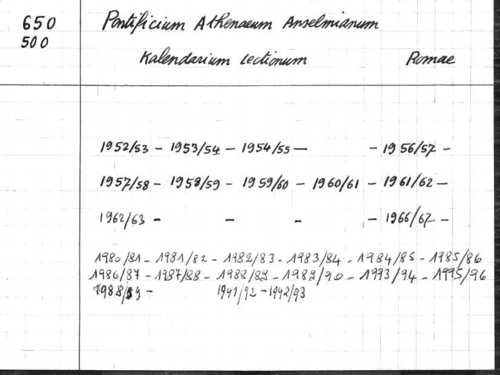 650
500
Pontificium Athenaeum Anselmianum
Kalendarium Lectionum Romae
1952/53 - 1953/54 - 1954/55 - - 1956/57 -
1957/58 - 1958/59 - 1959/60 - 1960/61 - 1961/62 -
1962/63 - - - - 1966/67 -
1980/81 - 1981/82 - 1982/83 - 1983/84 - 1984/85 - 1985/86
1986/87 - 1987/88 - 1988/89 - 1989/90 - 1993/94 - 1995/96
1988/89 - 1991/92 - 1992/93